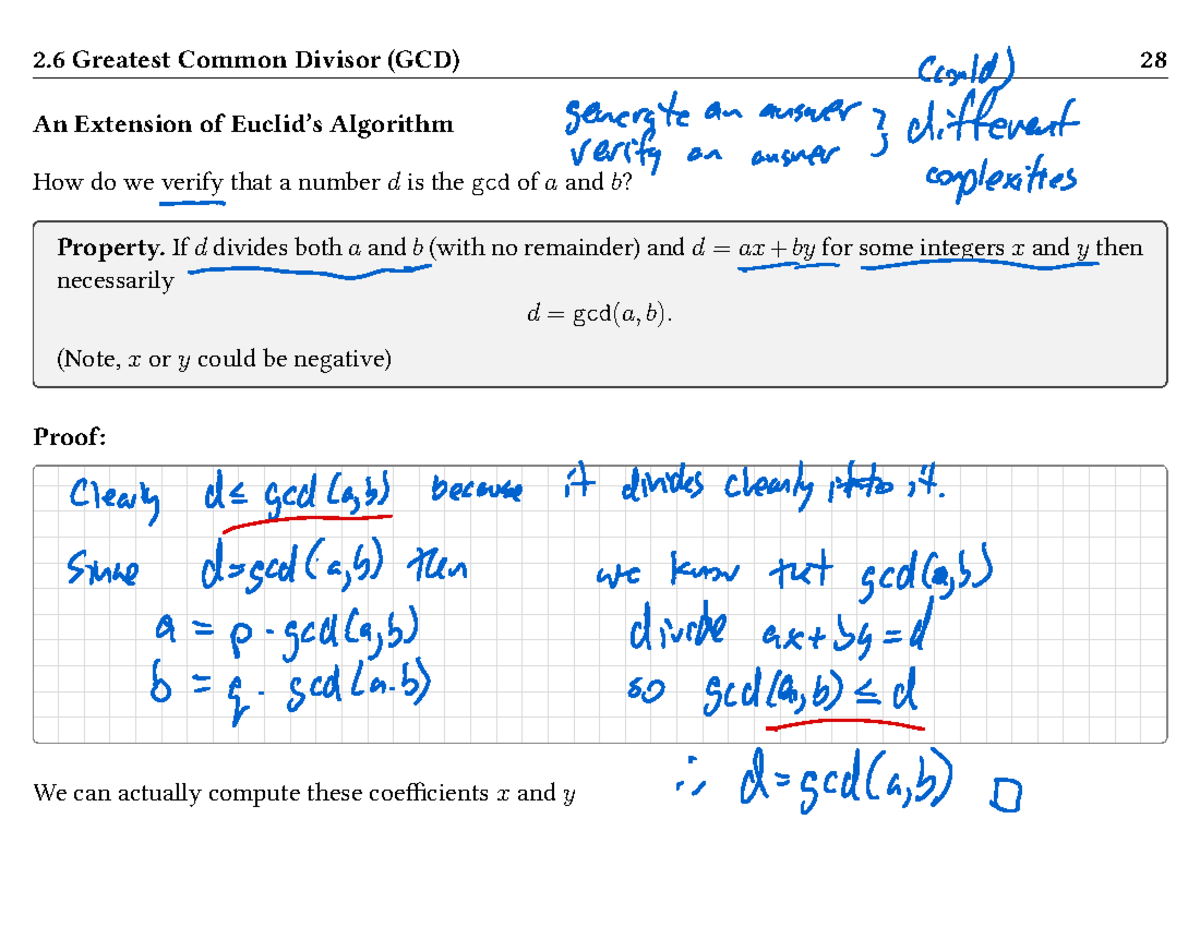 2.6 Greatest Common Divisor (GCD) 28
(could)
generate an answer } different
verify an answer
complexities
An Extension of Euclid's Algorithm
How do we verify that a number d is the gcd of a and b?
Property. If d divides both a and b (with no remainder) and d = ax + by for some integers x and y then
necessarily
d = gcd(a, b).
(Note, x or y could be negative)
Proof:
Clearly d ≤ gcd(a,b) because it divides clearly it.
Since d=gcd(a,b) then we know that gcd(a,b)
a = p · gcd(a,b) divide ax+by=d
b = q · gcd(a.b) so gcd(a,b) ≤ d
∴ d=gcd(a,b) □
We can actually compute these coefficients x and y